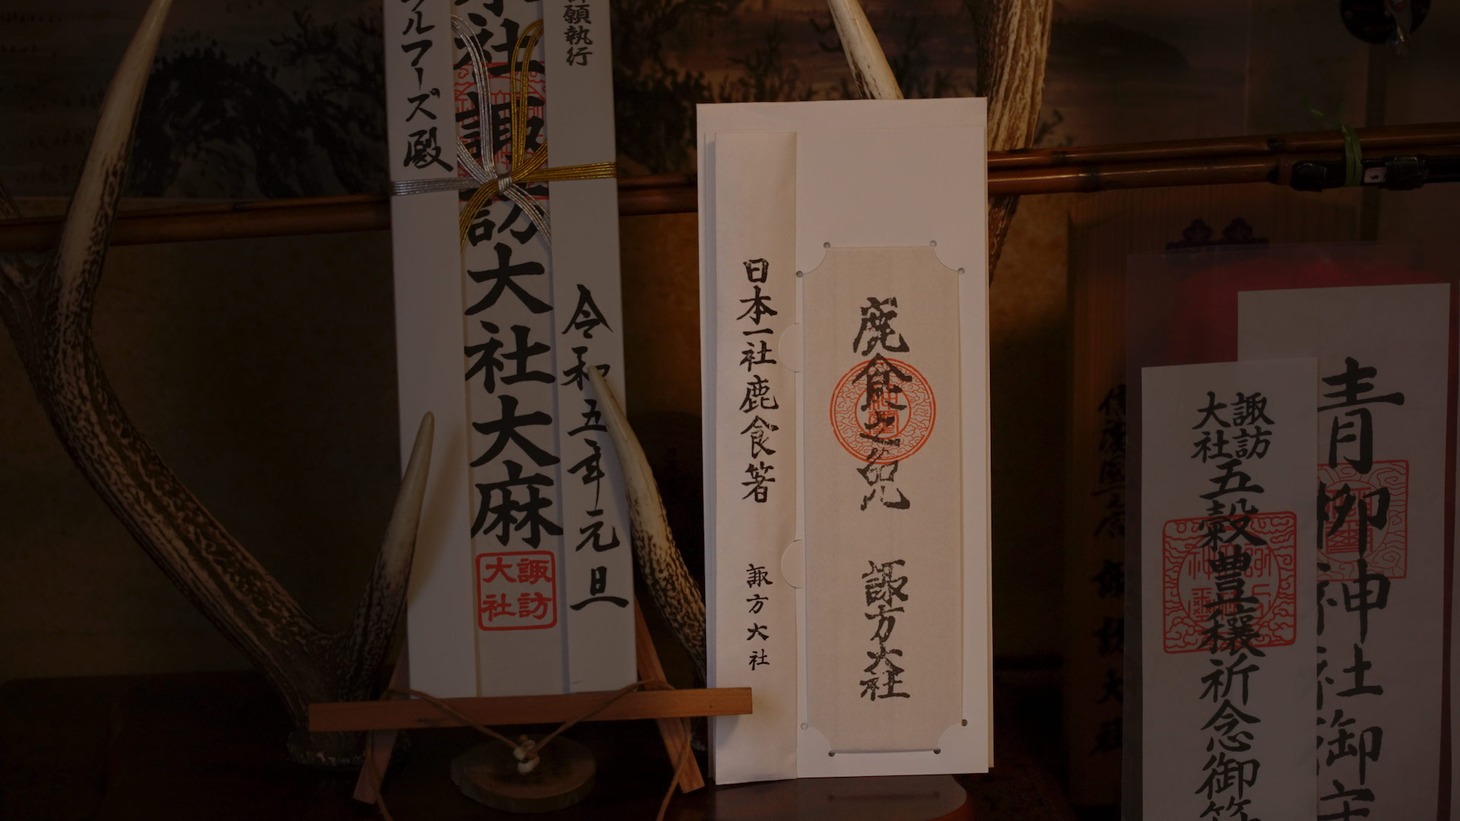 ルフーズ殿
社諏訪大社大麻
諏訪
大社
願執行
令和五年元旦
日本一社鹿食箸
諏方大社
鹿食之免
諏方大社
諏訪
大社
五穀豊穣祈念御
青柳神社御